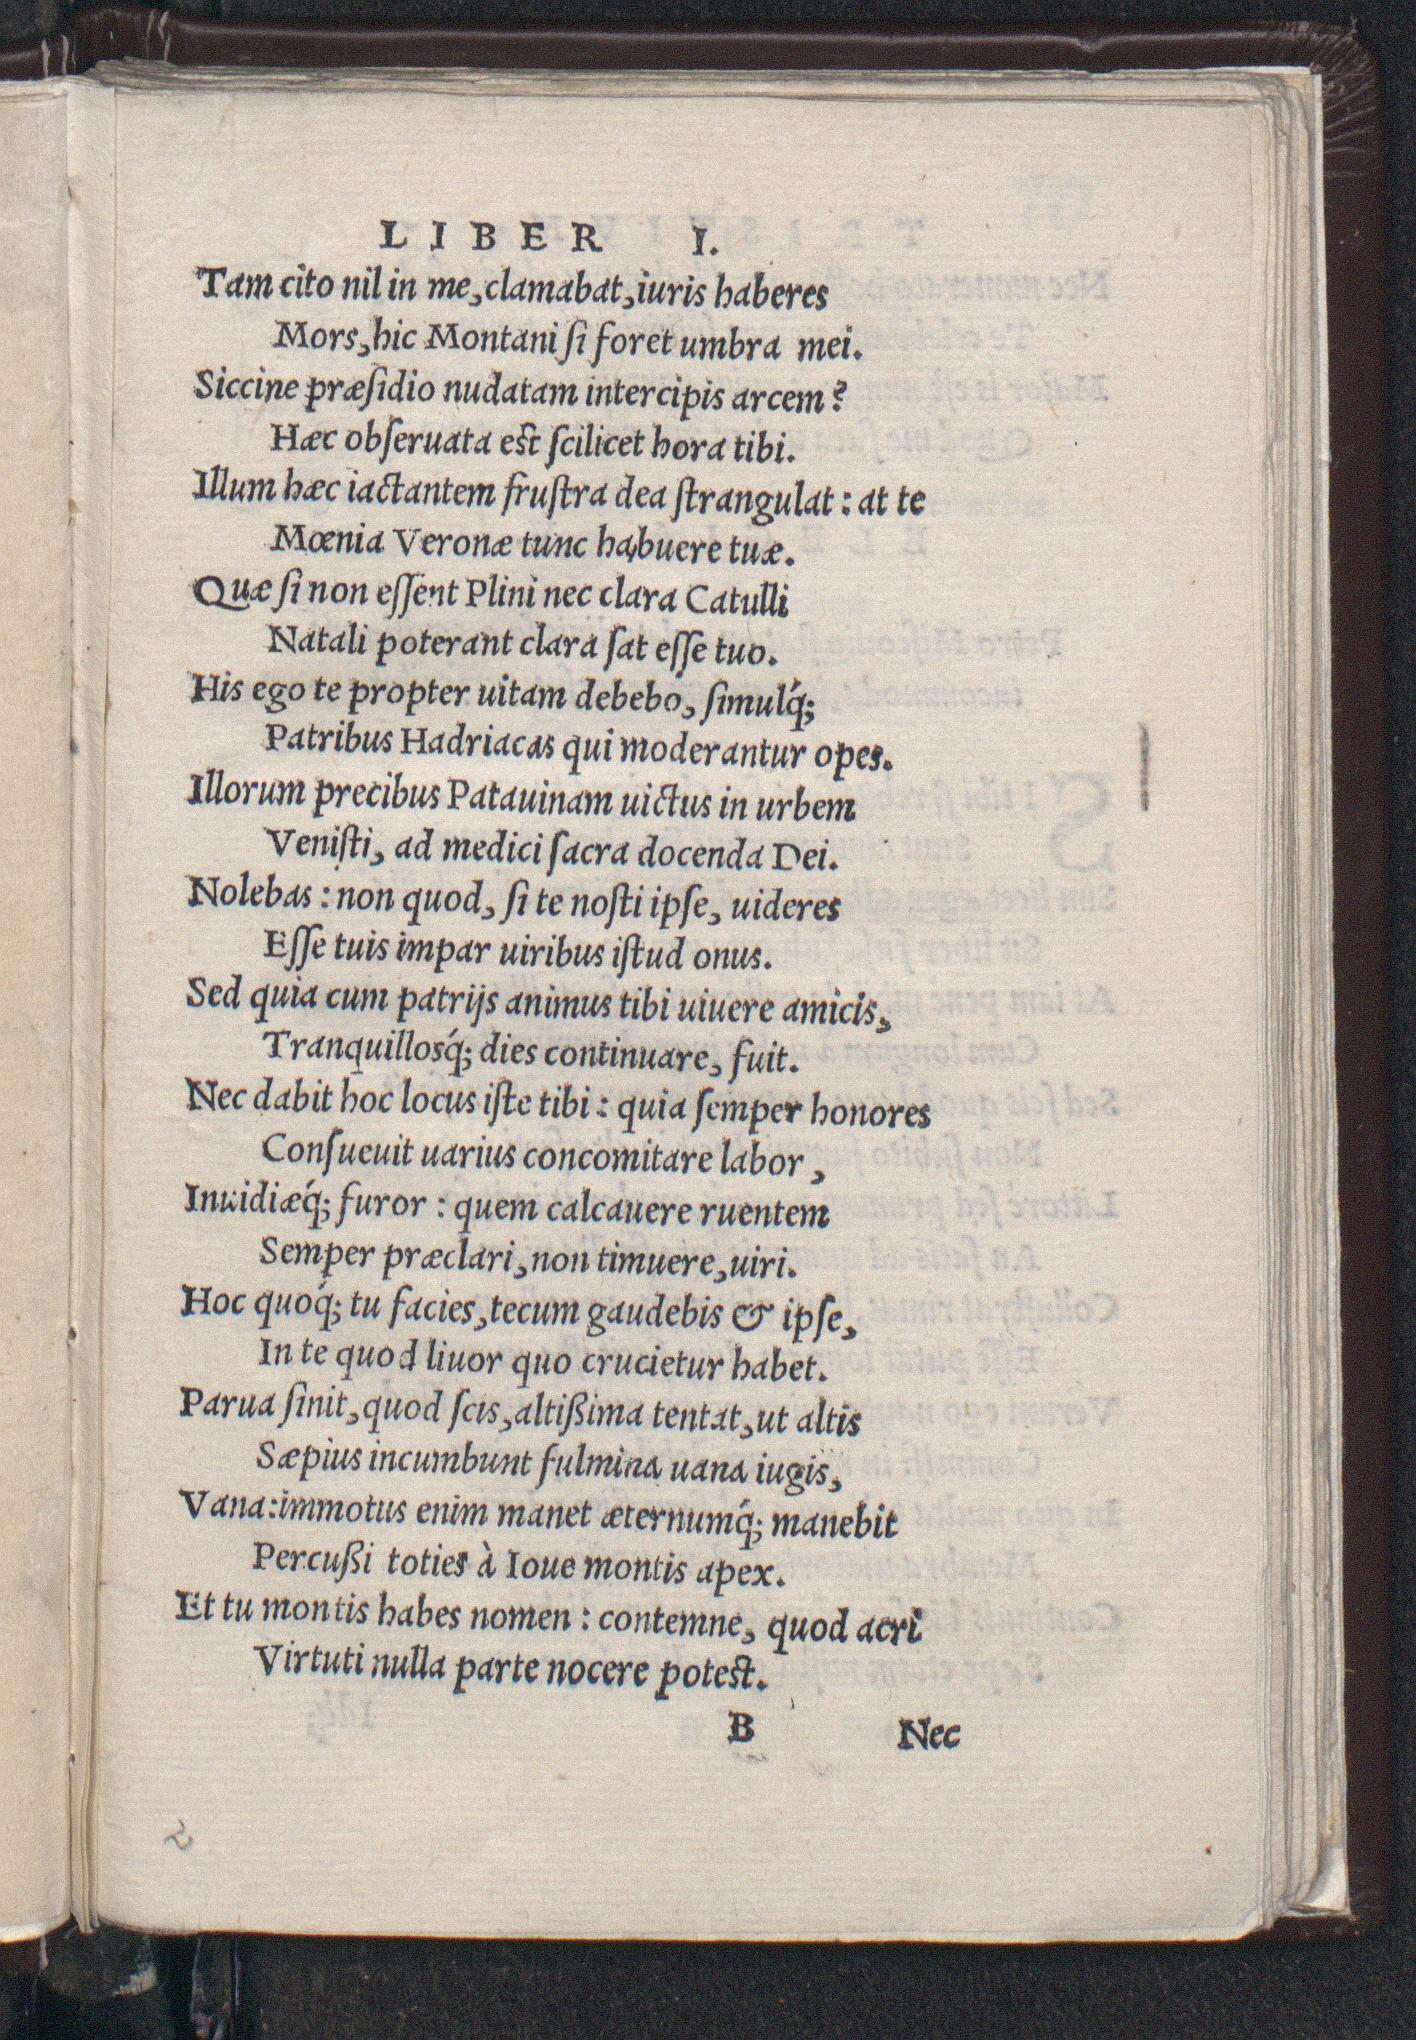 LIBER I.
Tam cito nil in me, clamabat, iuris haberes
Mors, hic Montani ſi foret umbra mei.
Siccine præſidio nudatam intercipis arcem?
Hæc obſeruata est ſcilicet hora tibi.
Illum hæc iactantem fruſtra dea ſtrangulat: at te
Mœnia Veronæ tunc habuere tuæ.
Quæ ſi non eſſent Plini nec clara Catulli
Natali poterant clara ſat eſſe tuo.
His ego te propter uitam debebo, ſimulq́;
Patribus Hadriacas qui moderantur opes.
Illorum precibus Patauinam uictus in urbem
Veniſti, ad medici ſacra docenda Dei.
Nolebas: non quod, ſi te noſti ipſe, uideres
Eſſe tuis impar uiribus iſtud onus.
Sed quia cum patrijs animus tibi uiuere amicis,
Tranquillosq́; dies continuare, fuit.
Nec dabit hoc locus iſte tibi: quia ſemper honores
Conſueuit uarius concomitare labor,
Inuidiæq́; furor: quem calcauere ruentem
Semper præclari, non timuere, uiri.
Hoc quoq́; tu facies, tecum gaudebis & ipſe,
In te quod liuor quo crucietur habet.
Parua ſinit, quod ſcis, altißima tentat, ut altis
Sæpius incumbunt fulmina uana iugis,
Vana: immotus enim manet æternumq́; manebit
Percußi toties à Ioue montis apex.
Et tu montis habes nomen: contemne, quod acri
Virtuti nulla parte nocere potest.
B Nec